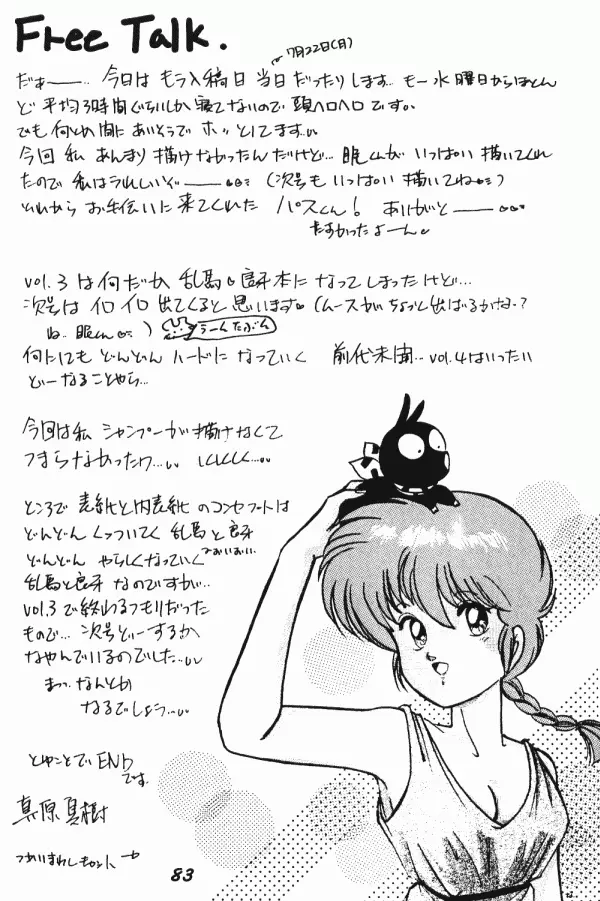 Free Talk.
7月22日(月)
だぁー… 今日は もう入稿日 当日だったりします… もー水曜日からほとん
ど 平均3時間ぐらいしか寝てないので 頭ヘロヘロです。
でも何とか間にあいそうで ホッとしてます
今回 私 あんまり描けなかったんだけど… 眠くんが いっぱい描いてくれ
たので 私はうれしいぞー (次号も いっぱい描いてね)
それから お手伝いに来てくれた パスくん! ありがとー
たすかったよーん
vol.3 は何だか 乱馬 良牙本になってしまったけど…
次号は イロイロ出てくると思います。(ムースがちょっと出ばるかな?
ね.. 眠くん)
うーんたぶん
何にしても どんどん ハードになっていく 前代未聞… vol.4はいったい
どーなることやら…
今回は私 シャンプーが描けなくて
つまらなかったワ… しくしく…
ところで 表紙と内表紙のコンセプトは
どんどん くっついてく 乱馬と良牙
どんどん やらしくなっていく
おいおい
乱馬と良牙 なのですが…
vol.3で終わるつもりだった
もので… 次号どーするか
なやんでいるのでした
まっ、なんとか
なるでしょう
とゆことで END
です.
真原真樹
83